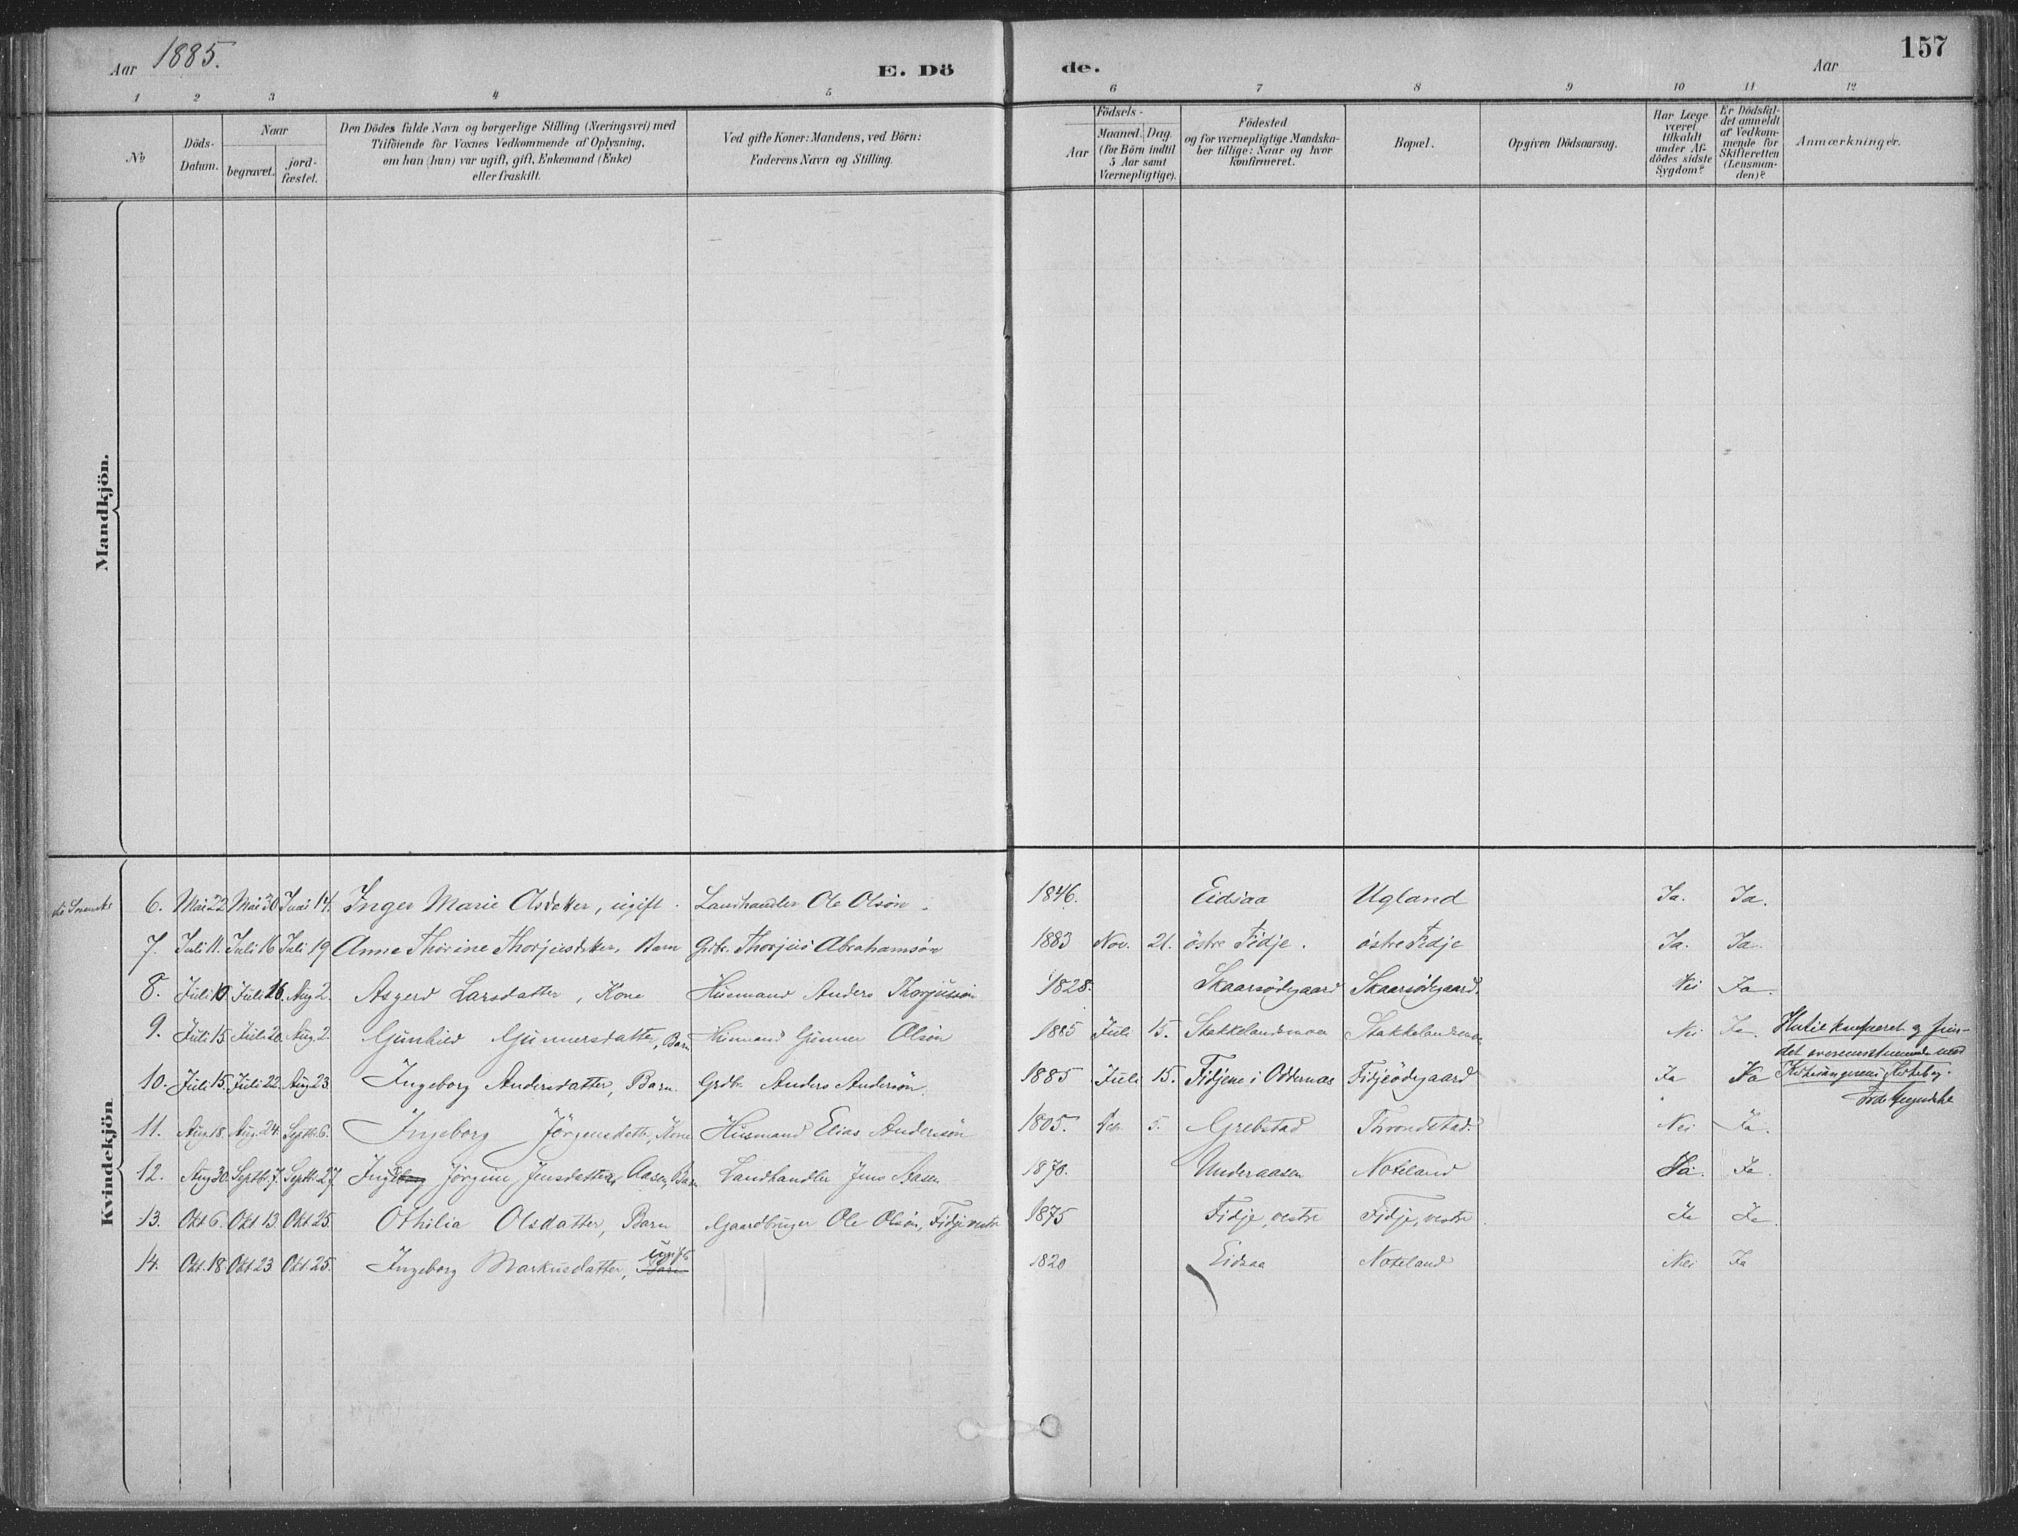 Aar 1885.
E. Dö
de.
Aar
157
1 2 3 4 5 6 7 8 9 10 11 12
No
Döds-
Datum.
Naar
begravet.
jord-
fæstet.
Den Dödes fulde Navn og borgerlige Stilling (Næringsvei) med
Tilföiende for Voxnes Vedkommende af Oplysning,
om han (hun) var ugift, gift, Enkemand (Enke)
eller fraskilt.
Ved gifte Koner: Mandens, ved Börn:
Faderens Navn og Stilling.
Födsels-
Aar
Maaned. Dag.
(for Börn indtil
5 Aar samt
Værnepligtige).
Födested
og for værnepligtige Mandska-
ber tillige: Naar og hvor
konfirmeret.
Bopæl.
Opgiven Dödsaarsag.
Har Læge
været
tilkaldt
under Af-
dödes sidste
Sygdom?
Er Dödsfal-
det anmeldt
af Vedkom-
mende for
Skifteretten
(Lensman-
den)?
Anmærkninger.
Mandkjön.
Kvindekjön
6. Mai 22 Mai 30 Juni 14. Inger Marie Olsdatter, ugift. Landhandler Ole Olsön. 1846. Eidsaa Ugland Ja. Ja.
7. Juli 11. Juli 16 Juli 19 Anne Thorine Thorjusdtter, Barn Grdbr. Thorjus Abrahamsön 1883 Nov. 21. östre Fidje. östre Fidje Ja. Ja.
8. Juli 10 Juli 26. Aug 2. Asgerd Larsdatter, Kone Husmand Anders Thorjussön 1828. Skaarsödegaard Skaarsödegaard. Nei Ja.
9. Juli 15. Juli 20. Aug 2. Gunhild Gunnersdatter, Barn Husmand Gunner Olsön 1885 Juli 15. Stakkelandsmoen Stakkelandsmoen Nei Ja.
10. Juli 15. Juli 22. Aug 23. Ingeborg Andersdatter, Barn Grdbr. Anders Andersön. 1885 Juli 15. Fidjene i Oddernes Fidjeödegaard Ja Ja
11. Aug 18. Aug. 24 Septb. 6. Ingeborg Jörgensdatter, Kone Husmand Elias Andersön 1805. 5. Grebstad Throndstad. Nei Ja.
12. Aug 30. Septb. 7. Septb. 27. Ingeborg Jörgine Jensdatter Aasen, Barn Landhandler Jens Aasen 1870. Underaasen Noteland Ja.
13. Okt 6. Okt 13. Okt 25. Othilia Olsdatter, Barn Gaardbruger Ole Olsön, Fidje vestre 1875 Fidje, vestre Fidje, vestre Ja Ja.
ugift
14. Okt. 18. Okt 23 Okt. 25. Ingeborg Markusdatter, Barn 1820 Eidsaa Noteland Nei Ja
det overensstemmende med